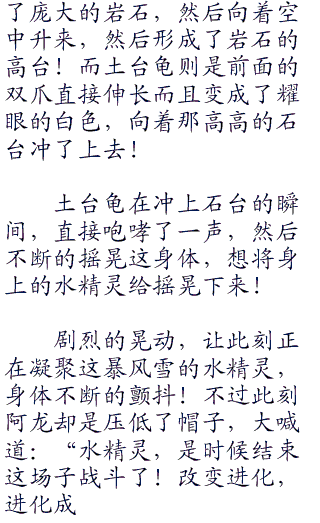 了庞大的岩石，然后向着空
中升来，然后形成了岩石的
高台！而土台龟则是前面的
双爪直接伸长而且变成了耀
眼的白色，向着那高高的石
台冲了上去！
土台龟在冲上石台的瞬
间，直接咆哮了一声，然后
不断的摇晃这身体，想将身
上的水精灵给摇晃下来！
剧烈的晃动，让此刻正
在凝聚这暴风雪的水精灵，
身体不断的颤抖！不过此刻
阿龙却是压低了帽子，大喊
道：“水精灵，是时候结束
这场子战斗了！改变进化，
进化成